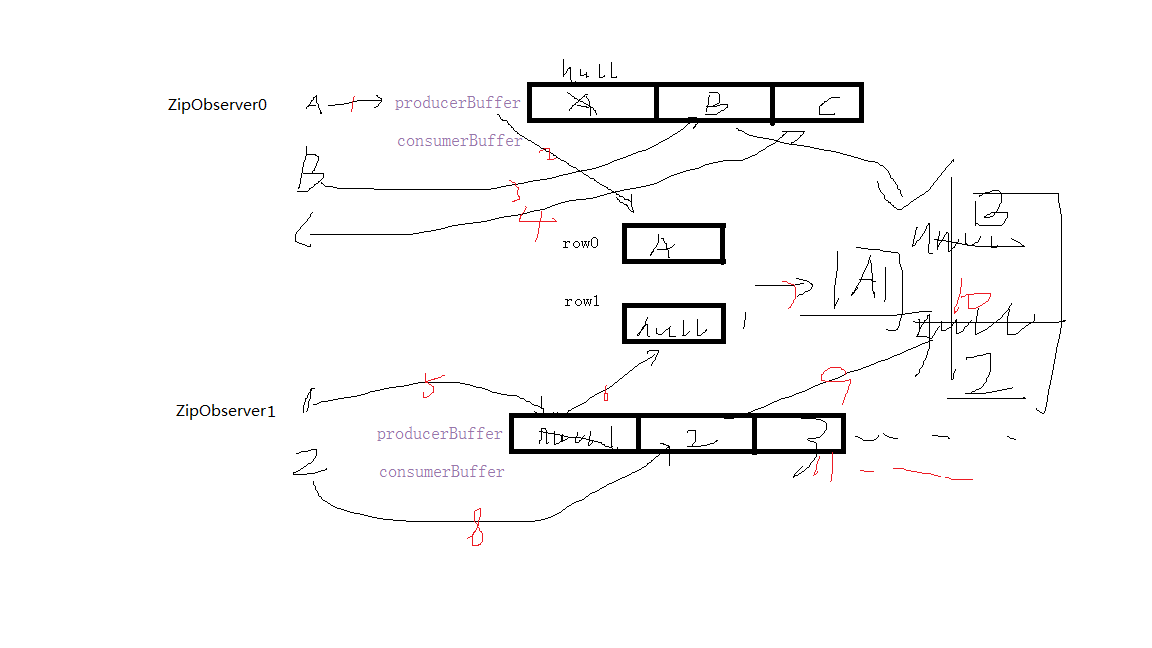 null
ZipObserver0 A 1 producerBuffer A B C
consumerBuffer
2
B 3
C 4
B
null
row0 A
A
7
10
row1
null 1
null
1 5 6 9
2
ZipObserver1
producerBuffer null 2 3
2 consumerBuffer 11
8